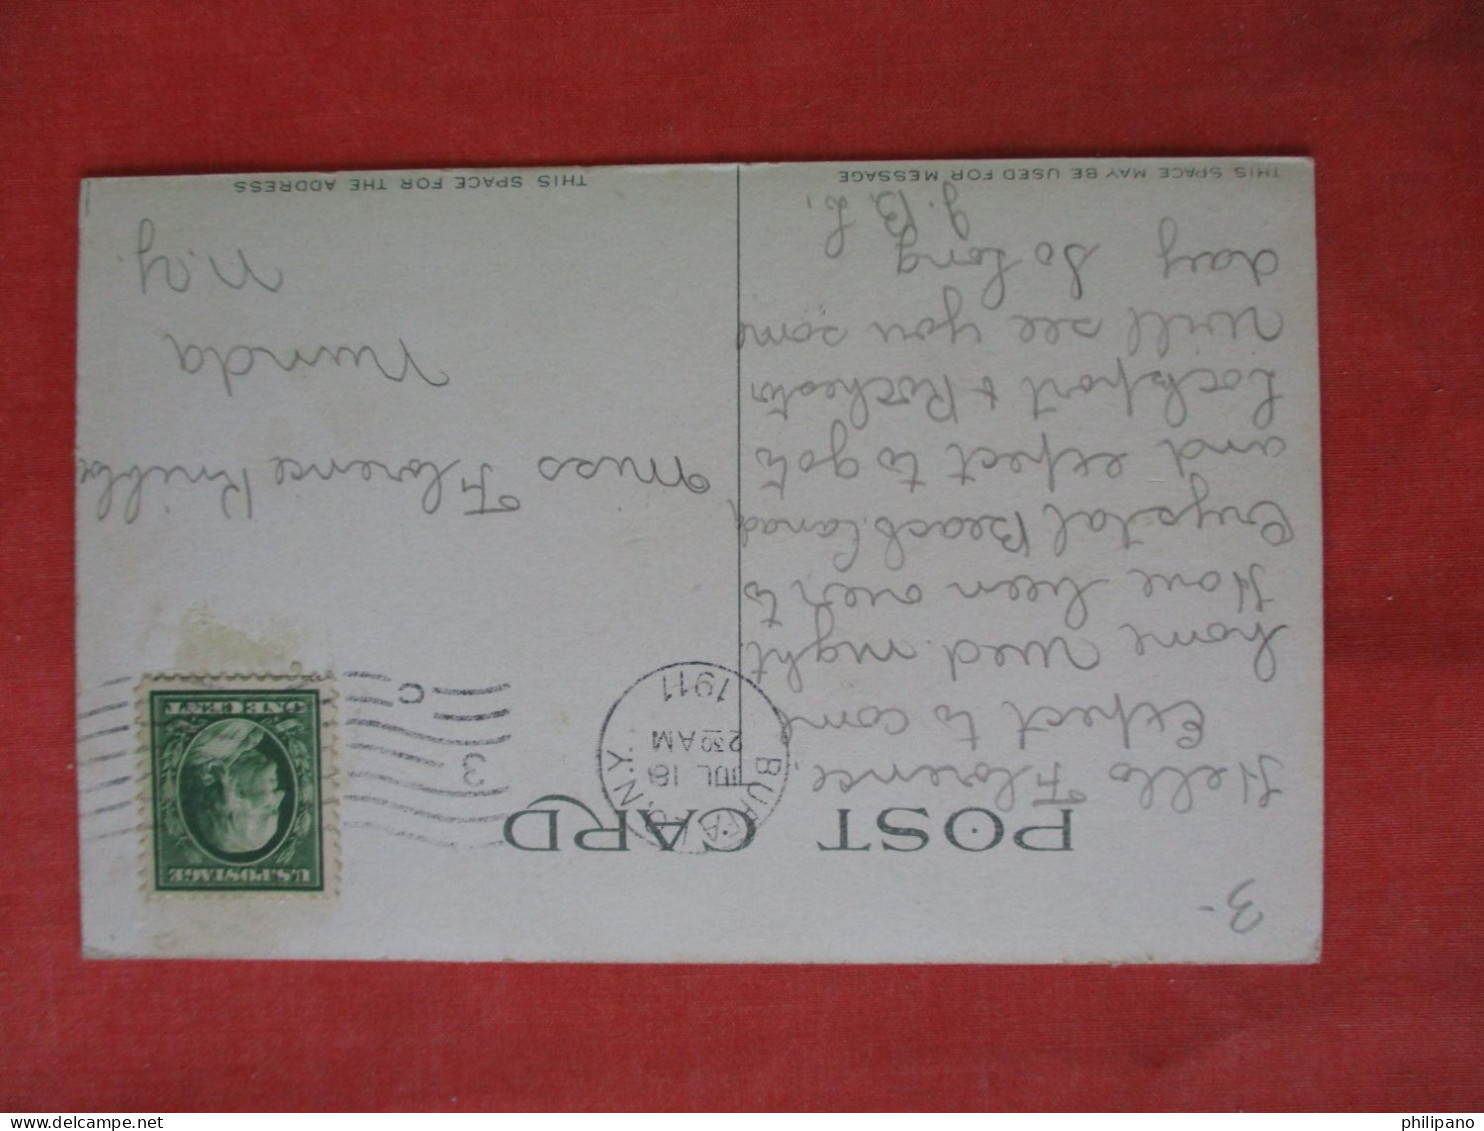 3-
POST CARD
Hello Florence,
Expect to come
home wed. night.
Have been over to
Crystal Beach Canad
and expect to go to
Lockport & Rochester
will see you some
day So Long
J. B. L.
THIS SPACE MAY BE USED FOR MESSAGE
BUFFALO, N.Y.
JUL 18
230 AM
1911
3
C
U.S. POSTAGE
ONE CENT
Miss Florence
Nunda
N.Y.
THIS SPACE FOR THE ADDRESS
www.delcampe.net
philipano